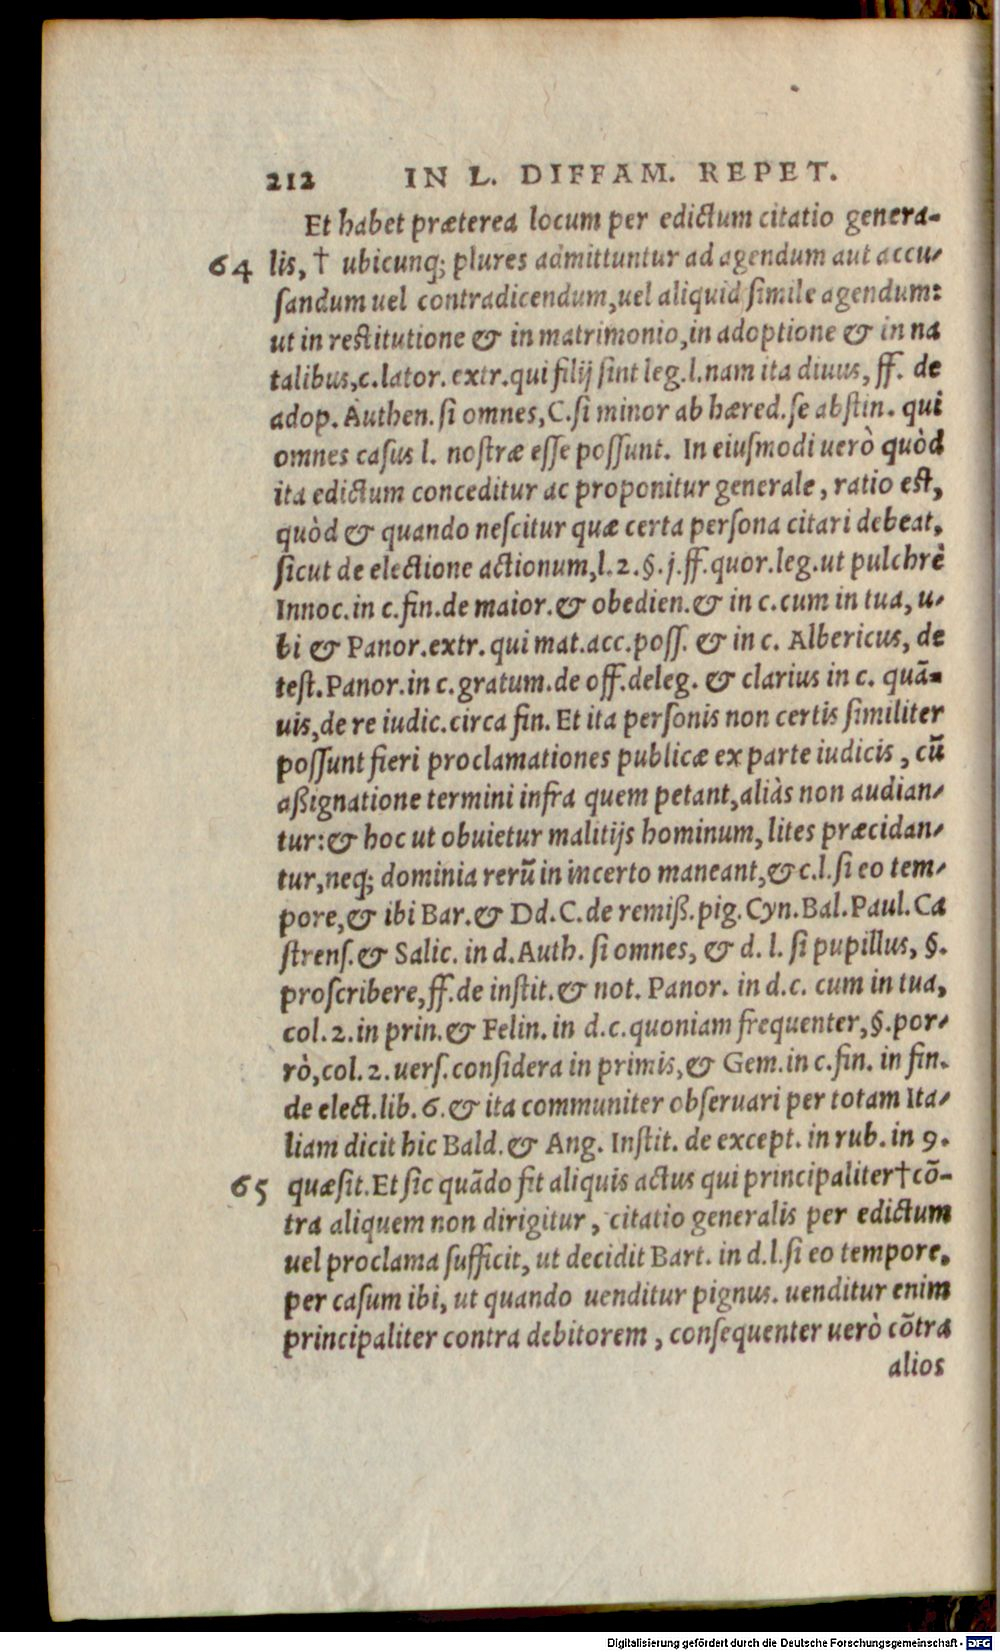 212 IN L. DIFFAM. REPET.
Et habet præterea locum per edictum citatio genera-
64 lis, † ubicunq; plures admittuntur ad agendum aut accu-
ſandum uel contradicendum, uel aliquid ſimile agendum:
ut in reſtitutione & in matrimonio, in adoptione & in na
talibus, c. lator. extr. qui filij ſint leg. l. nam ita diuus, ff. de
adop. Authen. ſi omnes, C. ſi minor ab hæred. ſe abſtin. qui
omnes caſus l. noſtræ eſſe poſſunt. In eiuſmodi uerò quòd
ita edictum conceditur ac proponitur generale, ratio eſt,
quòd & quando neſcitur quæ certa perſona citari debeat,
ſicut de electione actionum, l. 2. §. j. ff. quor. leg. ut pulchrè
Innoc. in c. fin. de maior. & obedien. & in c. cum in tua, u-
bi & Panor. extr. qui mat. acc. poſſ. & in c. Albericus, de
teſt. Panor. in c. gratum. de off. deleg. & clarius in c. quã-
uis, de re iudic. circa fin. Et ita perſonis non certis ſimiliter
poſſunt fieri proclamationes publicæ ex parte iudicis, cũ
aßignatione termini infra quem petant, aliàs non audian-
tur: & hoc ut obuietur malitijs hominum, lites præcidan-
tur, neq; dominia rerũ in incerto maneant, & c. l. ſi eo tem-
pore, & ibi Bar. & Dd. C. de remiß. pig. Cyn. Bal. Paul. Ca
ſtrenſ. & Salic. in d. Auth. ſi omnes, & d. l. ſi pupillus, §.
proſcribere, ff. de inſtit. & not. Panor. in d. c. cum in tua,
col. 2. in prin. & Felin. in d. c. quoniam frequenter, §. por-
rò, col. 2. uerſ. conſidera in primis, & Gem. in c. fin. in fin.
de elect. lib. 6. & ita communiter obſeruari per totam Ita-
liam dicit hic Bald. & Ang. Inſtit. de except. in rub. in 9.
65 quæſit. Et ſic quãdo fit aliquis actus qui principaliter † cõ-
tra aliquem non dirigitur, citatio generalis per edictum
uel proclama ſufficit, ut decidit Bart. in d. l. ſi eo tempore,
per caſum ibi, ut quando uenditur pignus. uenditur enim
principaliter contra debitorem, conſequenter uerò cõtra
alios
Digitalisierung gefördert durch die Deutsche Forschungsgemeinschaft - DFG